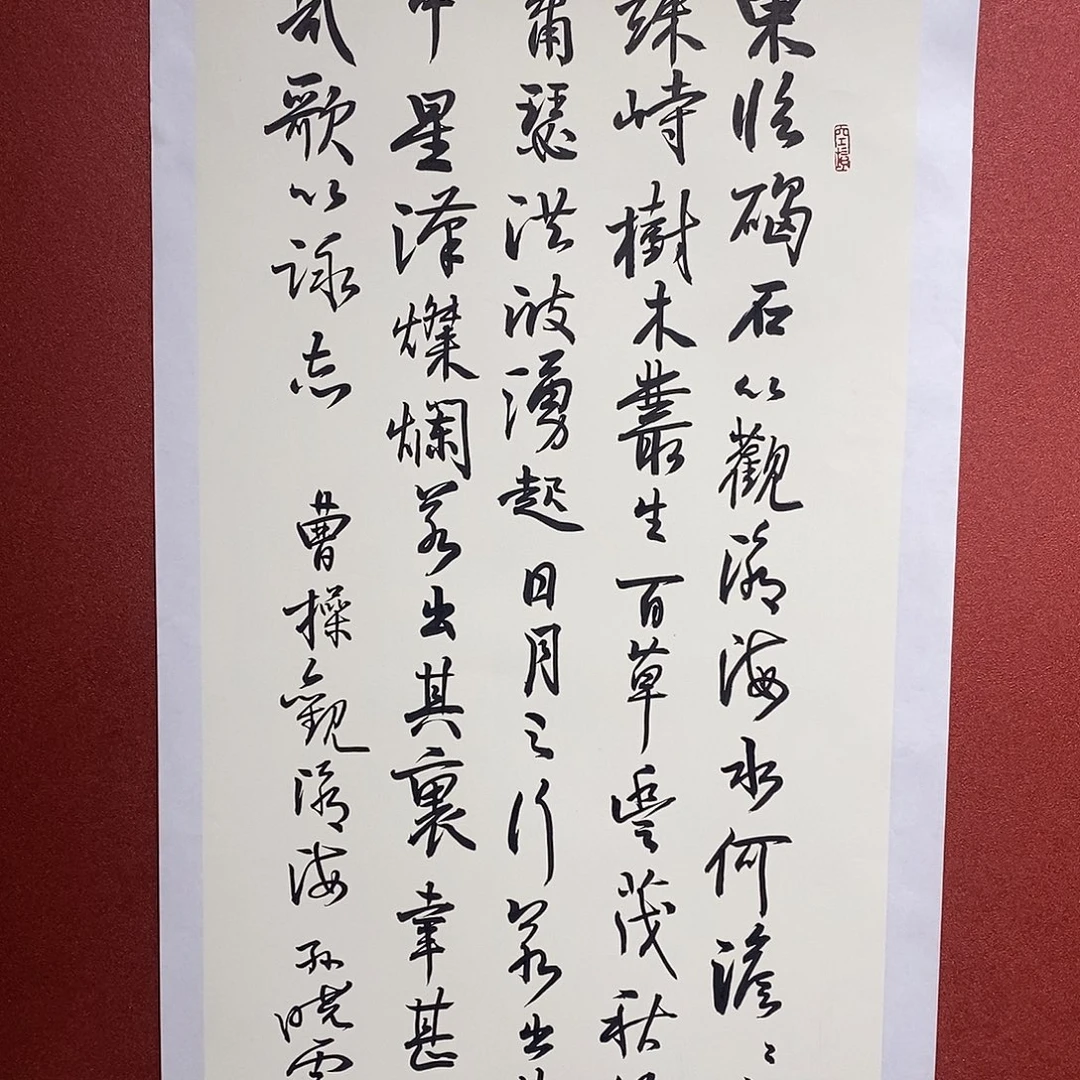 東臨碣石以觀滄海水何澹〻
竦峙樹木叢生百草豐茂秋
蕭瑟洪波湧起日月之行若出
中星漢燦爛若出其裏幸甚
哉歌以詠志 曹操觀滄海 孫曉雲